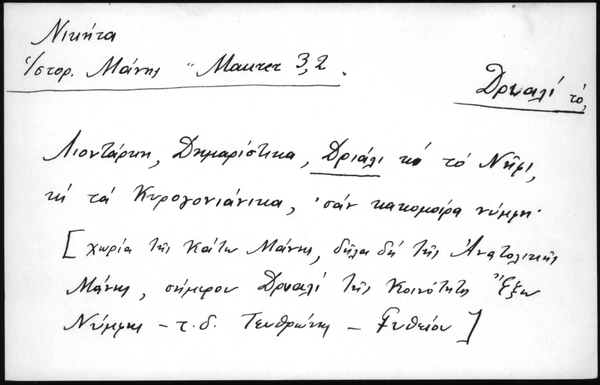 Νικήτα
Ἱστορ. Μάνης " Μαυτετ 3,2.
Δρυαλί τό,
Λιοντάρκη, Δημαρίστικα, Δριάλι κι τό Νῆμι,
κι τά Κυρογονιάνικα, 'σάν κακομοίρα νύμφη.
[χωρία τῆς Κάτω Μάνης, δῆλα δή τῆς Ἀνατολικῆς
Μάνης, σήμερον Δρυαλί τῆς Κοινότητ. Ἔξω
Νύμφης - τ.δ. Τευθρώνης - Γυθείου]